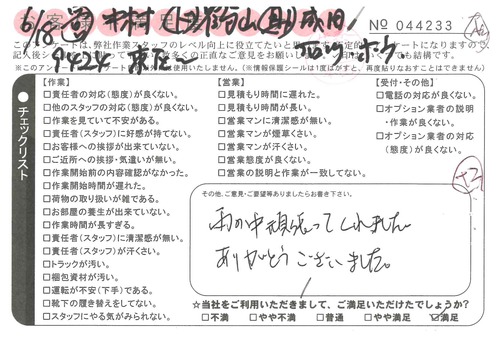 6/18
№ 044233
9424
このアンケートは、弊社作業スタッフのレベル向上に役立てたいと
チェックリスト
【作業】
□責任者の対応(態度)が良くない。
□他のスタッフの対応(態度)が良くない。
□作業を見ていて不安がある。
□責任者(スタッフ)に好感が持てない。
□お客様への挨拶が出来ていない。
□ご近所への挨拶・気遣いが無い。
□作業開始前の内容確認がなかった。
□作業開始時間が遅れた。
□荷物の取り扱いが雑である。
□お部屋の養生が出来ていない。
□作業時間が長すぎる。
□責任者(スタッフ)に清潔感が無い。
□責任者(スタッフ)が汗くさい。
□トラックが汚い。
□梱包資材が汚い。
□運転が不安(下手)である。
□靴下の履き替えをしてない。
□スタッフにやる気がみられない。
【営業】
□見積もり時間に遅れた。
□見積もり時間が長い。
□営業マンに清潔感が無い。
□営業マンが煙草くさい。
□営業マンが汗くさい。
□営業態度が良くない。
□営業の説明と作業が一致してない。
【受付・その他】
□電話の対応が良くない。
□オプション業者の説明
・作業が良くない。
□オプション業者の対応
(態度)が良くない。
その他、ご意見・ご要望等ありましたらお書き下さい。
雨の中頑張ってくれました。
ありがとうございました。
☆当社をご利用いただきまして、ご満足いただけたでしょうか?
□不満 □やや不満 □普通 □やや満足 ☑満足